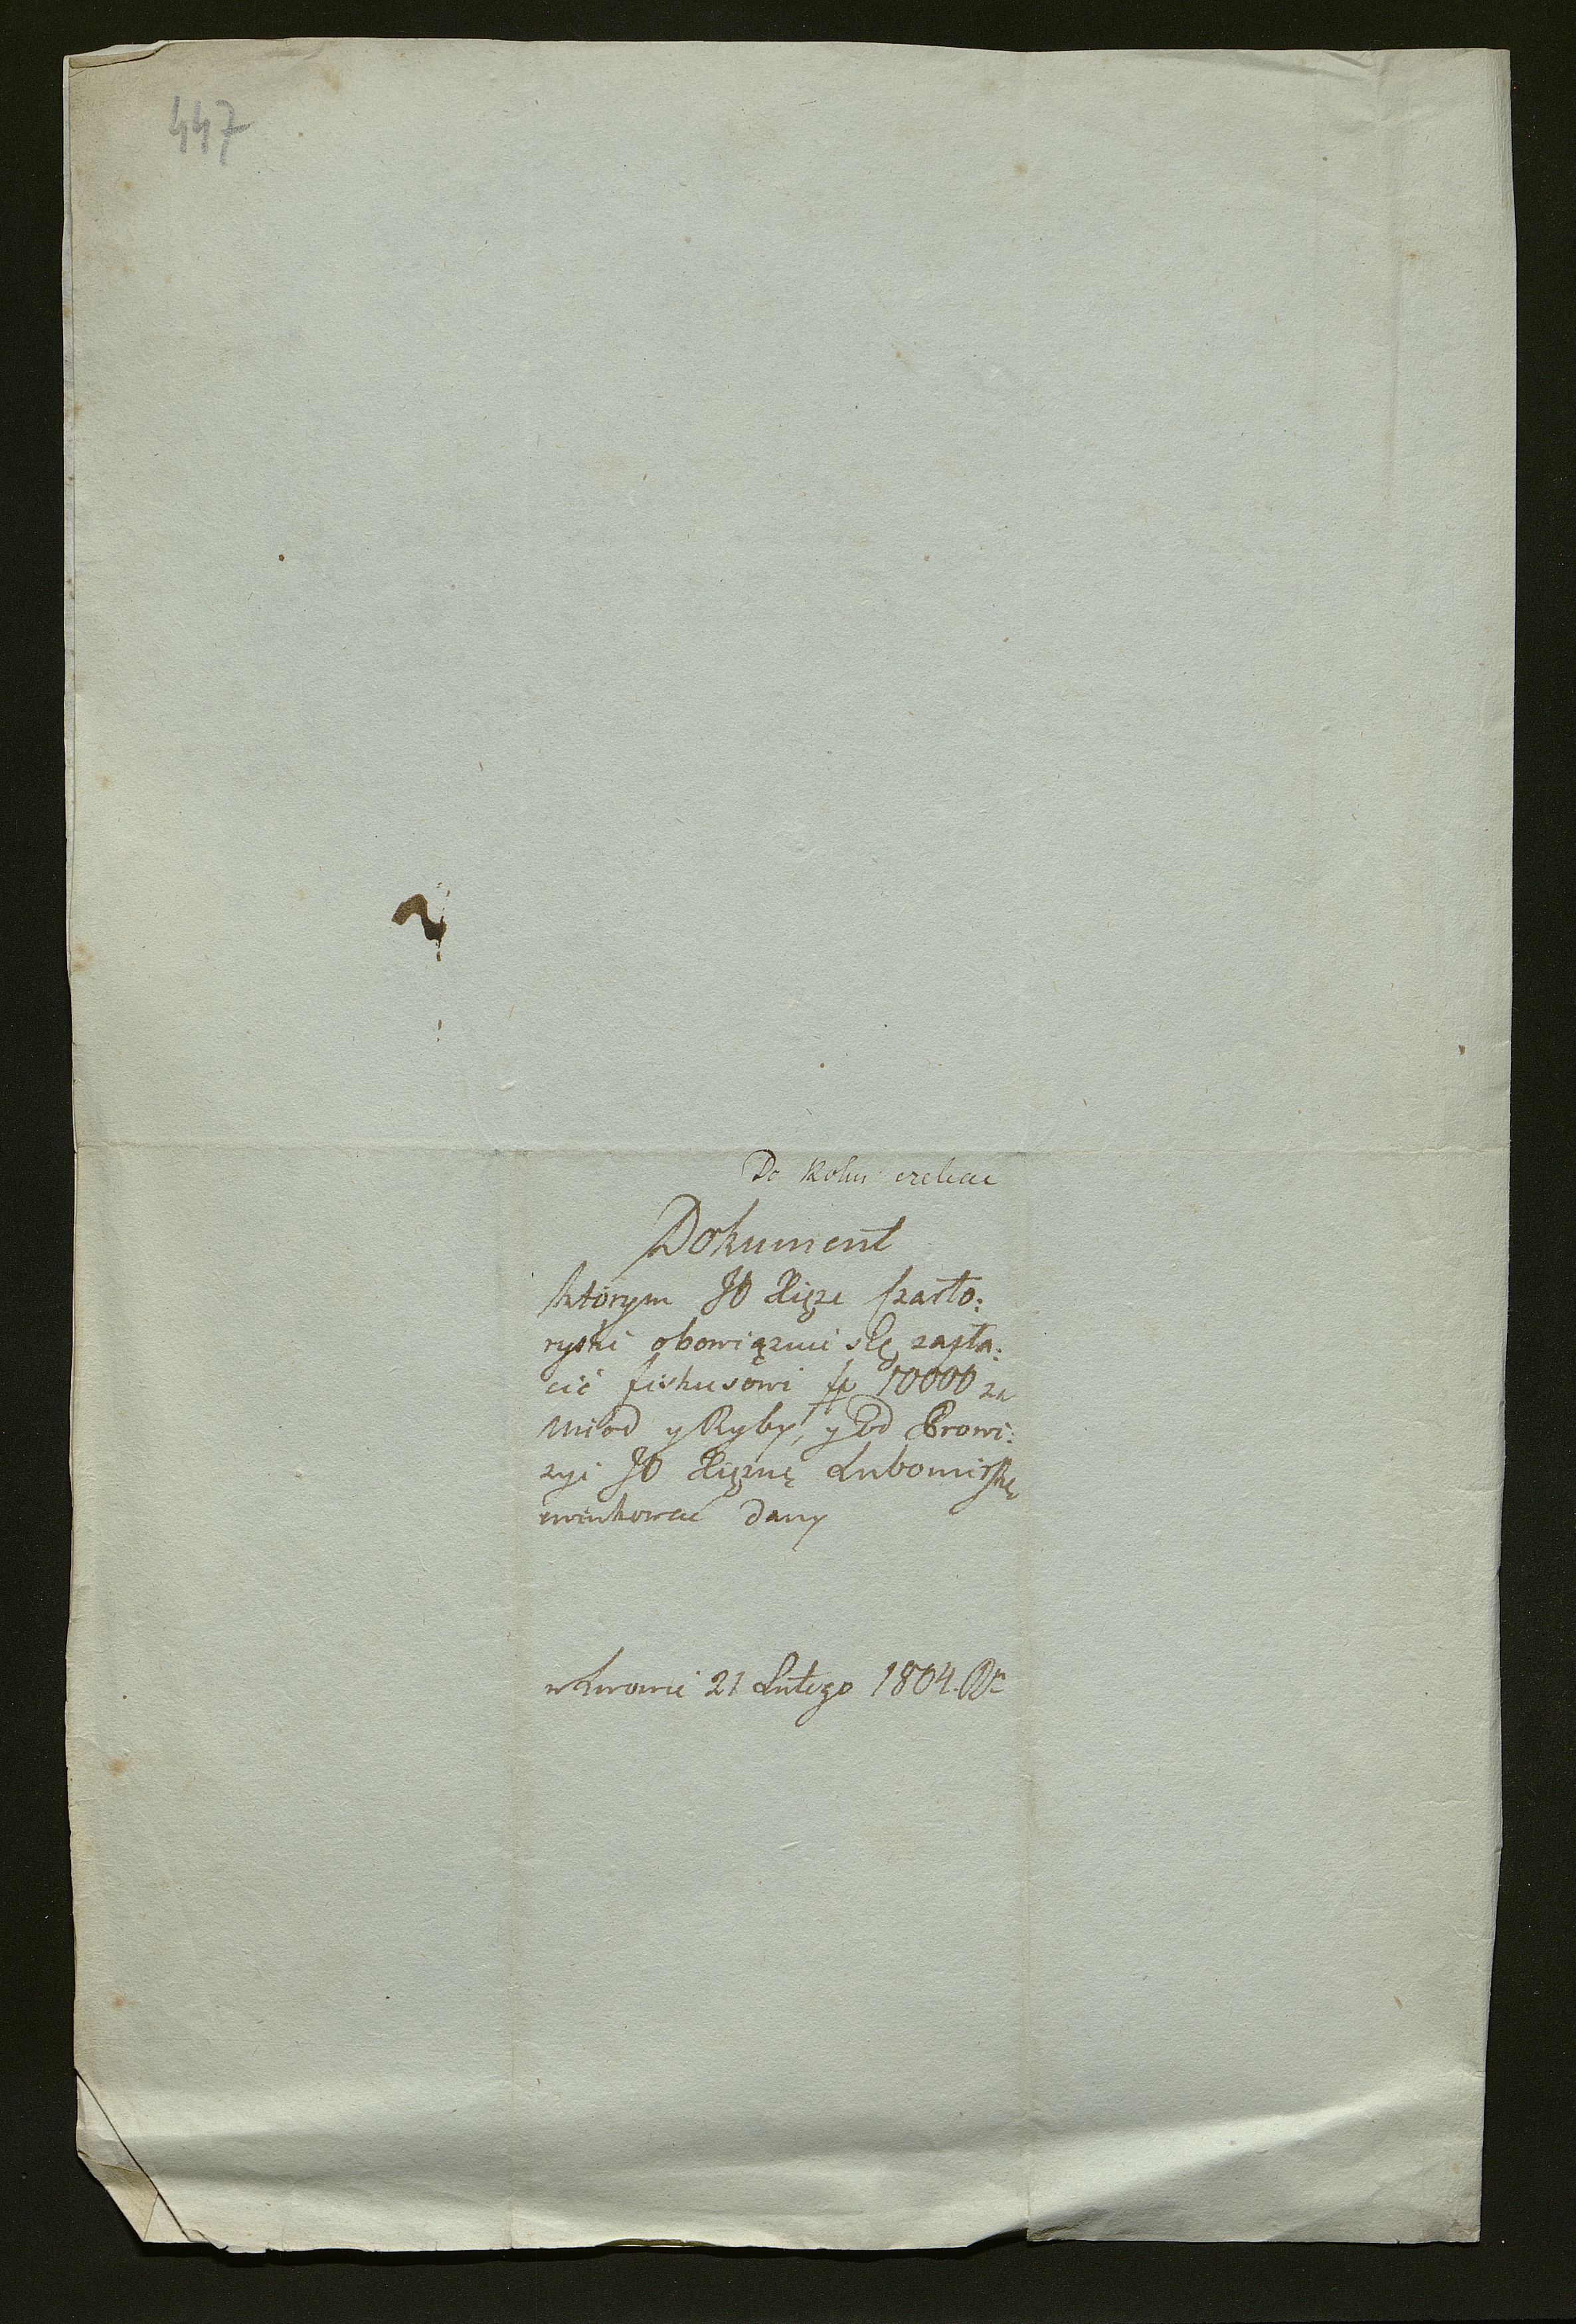 447
Do
Dokument
którym JO Xiąże Czarto:
ryski obowiązuie się zapła:
cić fiskusowi fp 10000 za
Miod y Ryby, y od Prowi:
zyi JO Xiężnę Lubomirską
ewinkować dany
w Lwowie 21 Lutego 1804. Rr